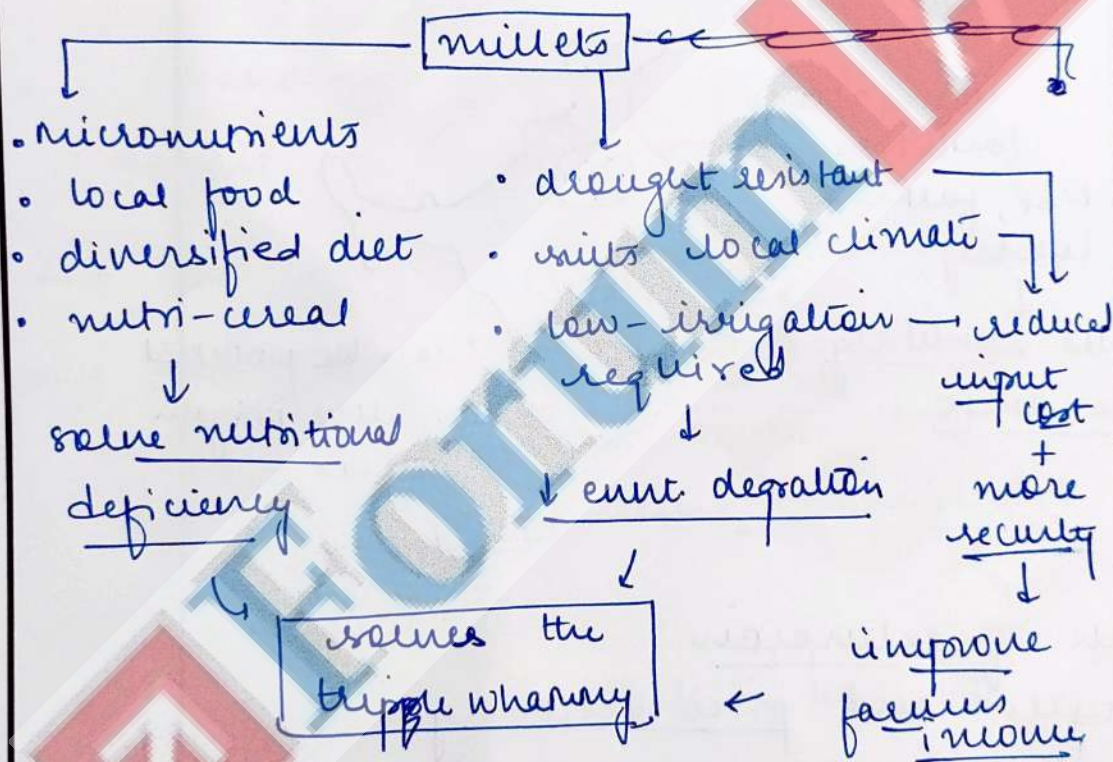 millets
• micronutrients
• local food
• diversified diet
• nutri-cereal
↓
solve nutritional
deficiency
• drought resistant
• suits local climate
• low-irrigation → reduced
required
input
cost
+
more
security
↓
↓ envt. degration
↓
improve
farmers
income
solves the
tripple whammy ←
ForumIA